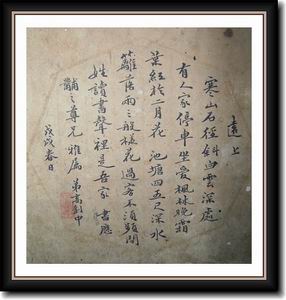 遠上
寒山石徑斜白雲深處
有人家停車坐愛楓林晚霜
葉紅於二月花 池塘四五尺深水
籬落兩三般樣花 過客不須頻問
姓讀書聲裡是吾家 書應
黼之尊兄雅屬 弟
戊戌春日